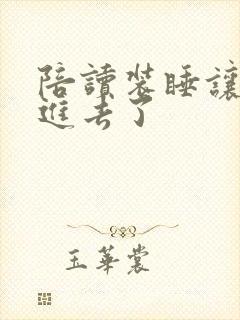 陪讀裝睡讓
進去了
玉華裳